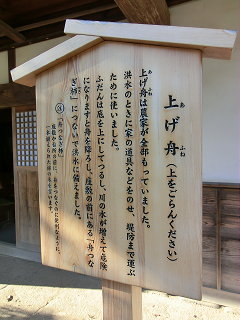 上げ舟（上をごらんください）
あ ふね
上げ舟は農家が全部もっていました。
洪水のときに家の道具などをのせ、堤防まで運ぶ
ために使いました。
ふだんは底を上にしてつるし、川の水が増えて危険
になりますと舟を降ろし、座敷の前にある「舟つな
ぎ柿」につないで洪水に備えました。
「舟つなぎ柿」